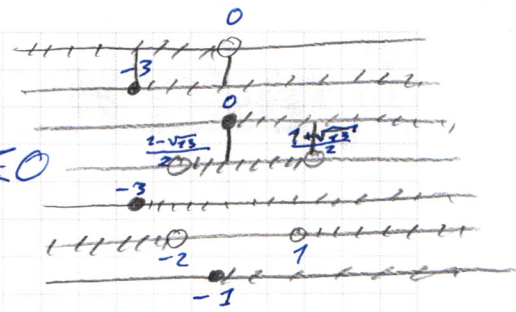 0
-3
0
1-√13
2
1+√13
2
EO
-3
-2 1
-1